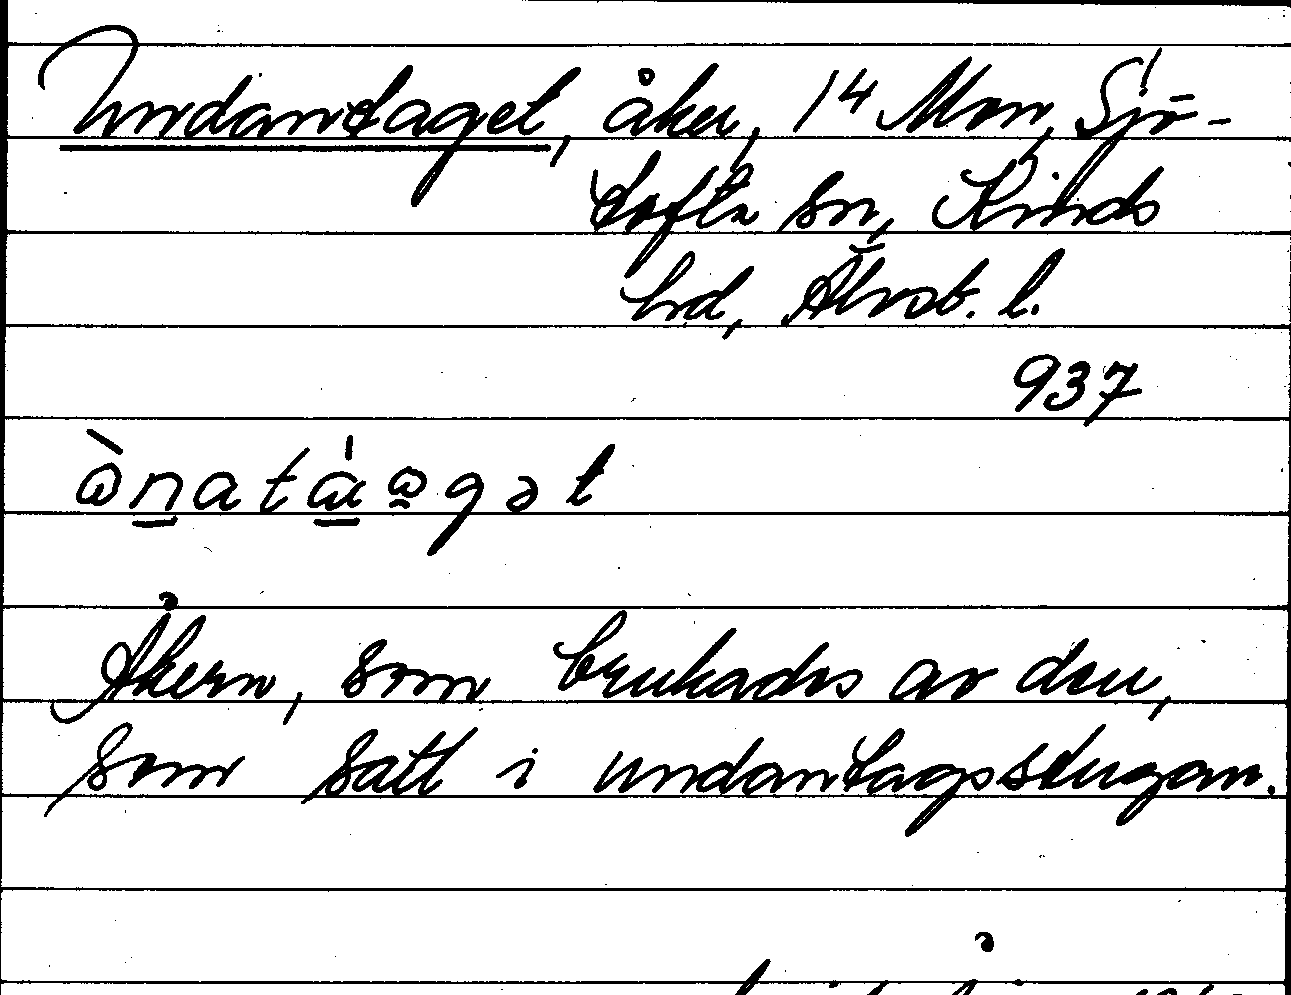 Undantaget, åker, 14 Mon, Sjö-
tofta sn, Kinds
hd, Älvsb. l.
937
Åkern, som brukades av den,
som satt i undantagsstugan.